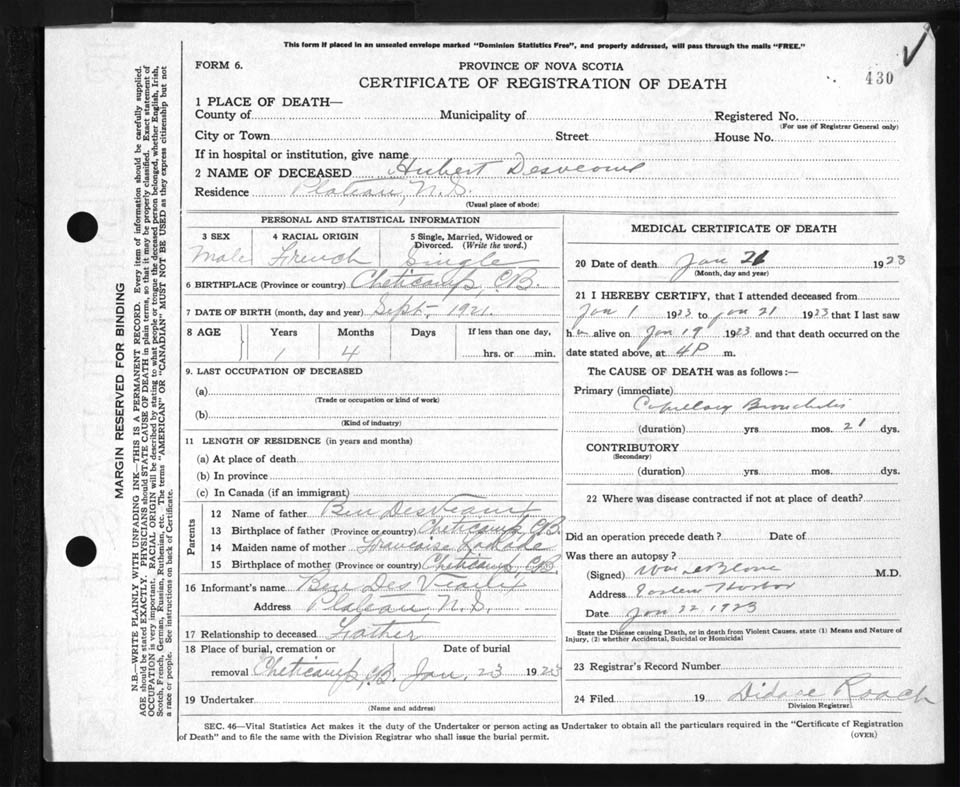 This form if placed in an unsealed envelope marked "Dominion Statistics Free", and properly addressed, will pass through the mails "FREE."
FORM 6.
PROVINCE OF NOVA SCOTIA
CERTIFICATE OF REGISTRATION OF DEATH
430
1 PLACE OF DEATH—
County of Municipality of Registered No.
(For use of Registrar General only)
City or Town Street House No.
If in hospital or institution, give name
2 NAME OF DECEASED Hubert Desveaux
Residence Plateau, N.S.
(Usual place of abode)
PERSONAL AND STATISTICAL INFORMATION
3 SEX 4 RACIAL ORIGIN 5 Single, Married, Widowed or Divorced. (Write the word.)
Male French Single
6 BIRTHPLACE (Province or country) Cheticamp, C.B.
7 DATE OF BIRTH (month, day and year) Sept. 1921.
8 AGE Years Months Days If less than one day,
1 4 hrs. or min.
9. LAST OCCUPATION OF DECEASED
(a)
(Trade or occupation or kind of work)
(b)
(Kind of industry)
11 LENGTH OF RESIDENCE (in years and months)
(a) At place of death
(b) In province
(c) In Canada (if an immigrant)
Parents
12 Name of father Ben DesVeaux
13 Birthplace of father (Province or country) Cheticamp, C.B.
14 Maiden name of mother Francoise
15 Birthplace of mother (Province or country) Cheticamp, C.B.
16 Informant's name Ben Des Veaux
Address Plateau, N.S.
17 Relationship to deceased Father
18 Place of burial, cremation or Date of burial
removal Cheticamp, C.B. Jan. 23 1923
19 Undertaker
(Name and address)
MEDICAL CERTIFICATE OF DEATH
20 Date of death Jan 21 1923
(Month, day and year)
21 I HEREBY CERTIFY, that I attended deceased from
Jan 1 1923 to Jan 21 1923 that I last saw
him alive on Jan 19 1923 and that death occurred on
date stated above, at 4 P m.
The CAUSE OF DEATH was as follows:—
Primary (immediate)
Capillary Bronchitis
(duration) yrs. mos. 21 dys.
CONTRIBUTORY
(Secondary)
(duration) yrs. mos. dys.
22 Where was disease contracted if not at place of death?
Did an operation precede death? Date of
Was there an autopsy?
(Signed) Wm LeBlanc M.D.
Address Eastern Harbor
Date Jan 22, 1923
State the Disease causing Death, or in death from Violent Causes. state (1) Means and Nature of
Injury, (2) whether Accidental, Suicidal or Homicidal
23 Registrar's Record Number
24 Filed 19 Didace Roach
Division Registrar
SEC. 46—Vital Statistics Act makes it the duty of the Undertaker or person acting as Undertaker to obtain all the particulars required in the "Certificate of Registration
of Death" and to file the same with the Division Registrar who shall issue the burial permit.
(OVER)
MARGIN RESERVED FOR BINDING
N.B.—WRITE PLAINLY WITH UNFADING INK—THIS IS A PERMANENT RECORD. Every item of information should be carefully supplied.
AGE should be stated EXACTLY. PHYSICIANS should STATE CAUSE OF DEATH in plain terms, so that it may be properly classified. Exact statement of
OCCUPATION is very important. RACIAL ORIGIN will be described by stating to what people or tongue the deceased person belonged, whether English, Irish,
Scotch, French, German, Russian, Ruthenian, etc. The terms "AMERICAN" OR "CANADIAN" MUST NOT BE USED as they express citizenship but not
a race or people. See instructions on back of Certificate.